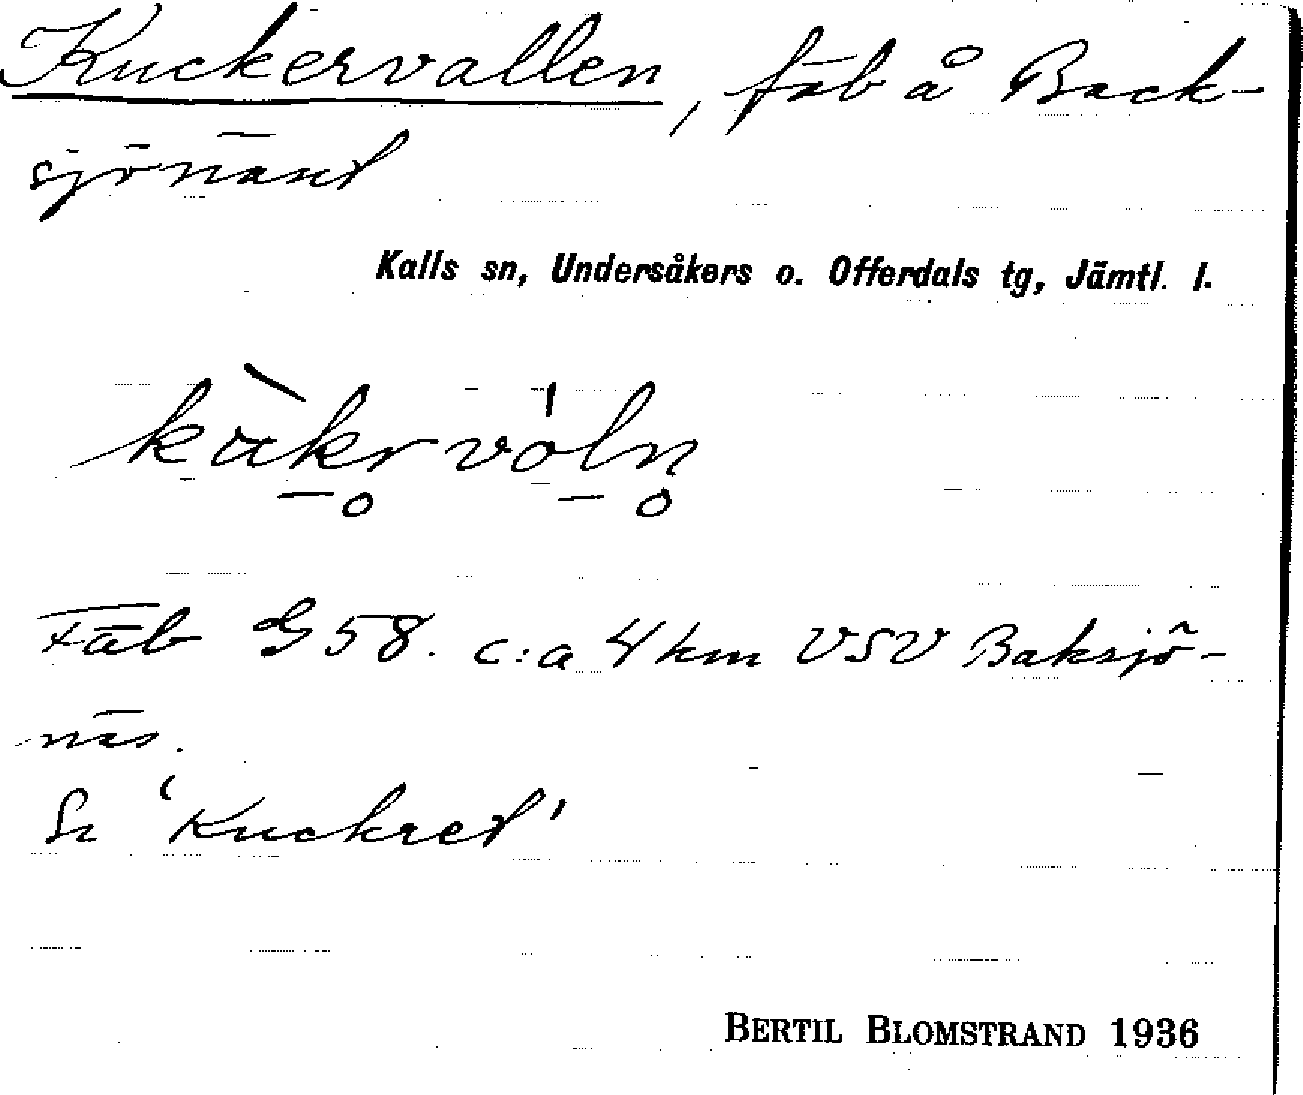 Kuckervallen, fäb å Back-
sjönäset
Kalls sn, Undersåkers o. Offerdals tg, Jämtl. l.
Fäb G58. c:a 4 km VSV Baksjö-
näs.
Se 'Kuckret'
BERTIL BLOMSTRAND 1936